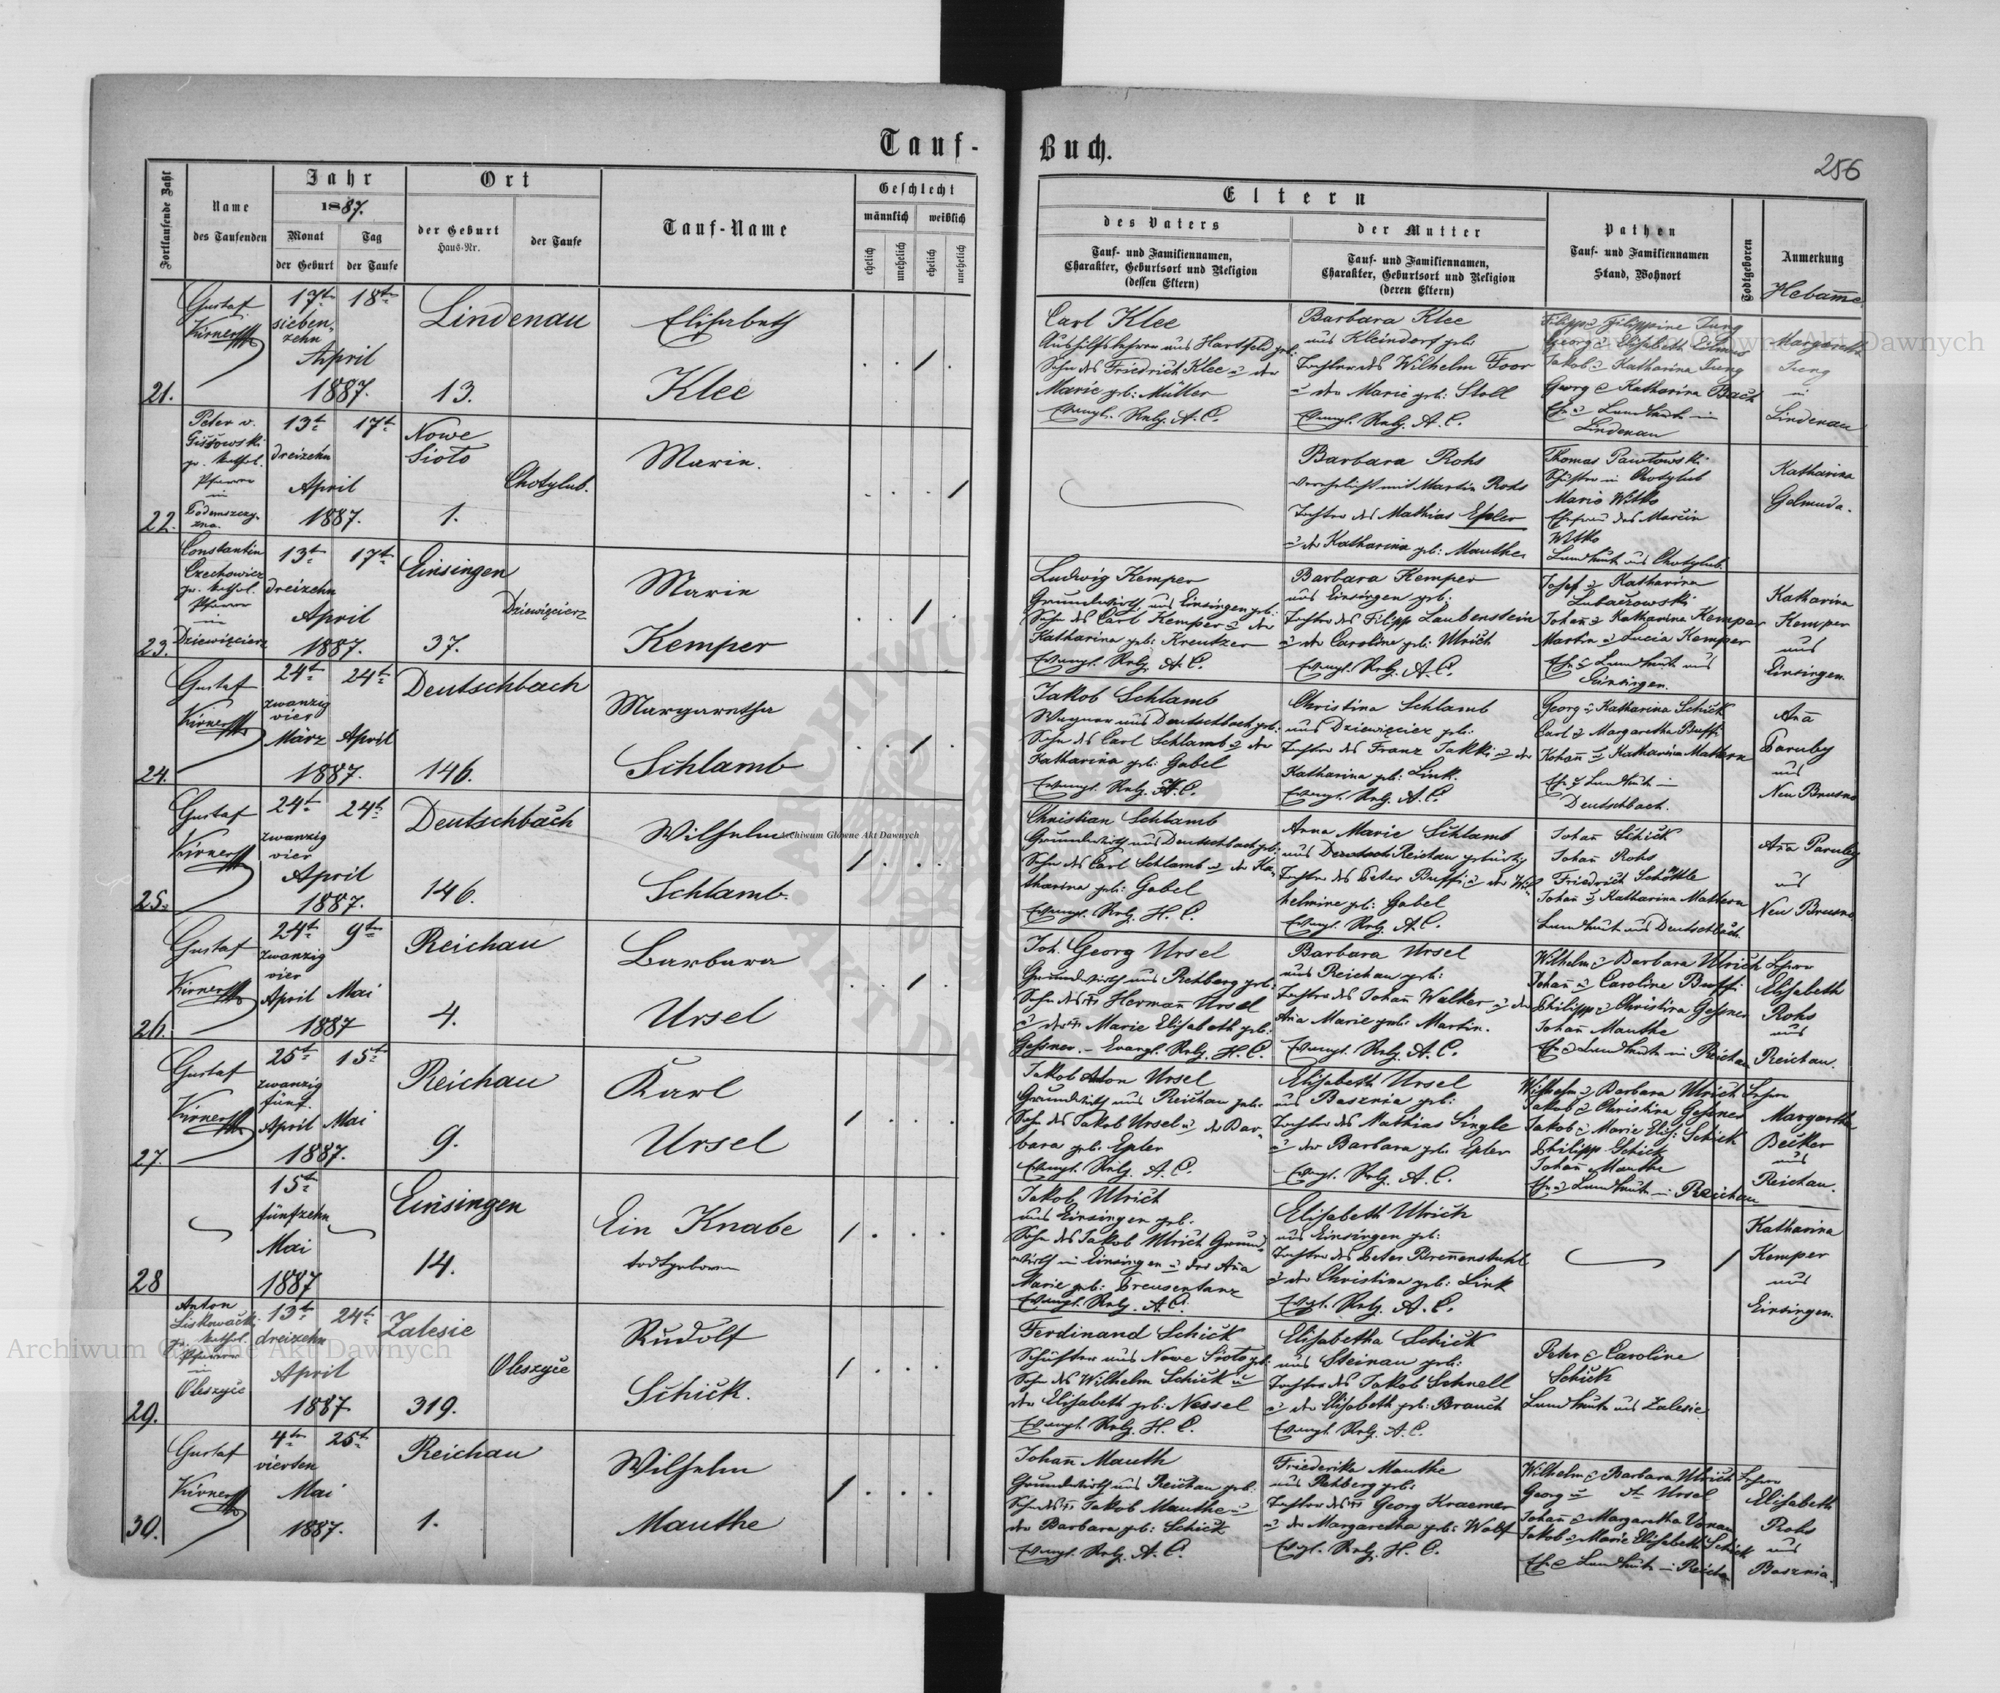 Tauf-
Buch.
256
Fortlaufende Zahl
Name
des Taufenden
Jahr
1887.
Monat
Tag
der Geburt
der Taufe
Ort
der Geburt
Haus-Nr.
der Taufe
Tauf-Name
Geschlecht
männlich
weiblich
ehelich
unehelich
ehelich
unehelich
Eltern
des Vaters
Tauf- und Familiennamen,
Charakter, Geburtsort und Religion
(dessen Eltern)
der Mutter
Tauf- und Familiennamen,
Charakter, Geburtsort und Religion
(deren Eltern)
Pathen
Tauf- und Familiennamen
Stand, Wohnort
Todtgeboren
Anmerkung
Hebam̄e
21.
Gustaf
17t
18t
sieben-
zehn
April
1887.
Lindenau
13.
Elisabeth
Klee
Carl Klee
Aushilfslehrer aus Hartfeld geb:
Sohn des Friedrich Klee u der
Marie geb: Müller
Evangl. Relg. A.C.
Barbara Klee
aus Kleindorf geb:
Tochter des Wilhelm Foor
u der Marie geb: Stoll
Evangl. Relg. A.C.
Filipp u Filippine Jung
Georg u Elisabeth
Jakob u Katharina Jung
Georg & Katharina Bach
Ehe u Landleute in
Lindenau
Margaretha
Jung
in
Lindenau
22.
Peter v.
gr. kathol.
Pfarrer
in
13t
17t
dreizehn
April
1887.
Nowe
Sioto
1.
Chotylub.
Marie.
Barbara Rohs
verehelicht mit Martin Rohs
Tochter des Mathias Epler
u der Katharina geb: Manthe
Thomas Pawłowski
Schuster in Chotylub
Maria Witko
Ehefrau des Marcin
Witko
Landleute aus Chotylub
Katharina
Golmuda.
23.
Constantin
Czechowicz
gr. kathol.
Pfarrer
in
Dziewięcierz
13t
17t
dreizehn
April
1887.
Einsingen
37.
Dziewięcierz
Marie
Kemper
Ludwig Kemper
Grundwirth aus Einsingen geb:
Sohn des Carl Kemper u der
Katharina geb: Kreutzer
Evangl. Relg. A.C.
Barbara Kemper
aus Einsingen geb:
Tochter des Filipp Laubenstein
u der Caroline geb: Ulrich
Evangl. Relg. A.C.
Josef u Katharina
Lubaczowski
Johan̄ u Katharina Kemper
Martin u Lucia Kemper
Ehe u Landleute aus
Einsingen.
Katharina
Kemper
aus
Einsingen.
24.
Gustaf
24t
24t
zwanzig
vier
März April
1887.
Deutschbach
146.
Margaretha
Schlamb
Jakob Schlamb
Wagner aus Deutschbach geb:
Sohn des Carl Schlamb u der
Katharina geb: Gabel
Evangl. Relg. H.C.
Christina Schlamb
aus Dziewięcierz geb:
Tochter des Franz Jakki u der
Katharina geb: Link.
Evangl. Relg. A.C.
Georg u Katharina Schick
Carl u Margaretha Buffi
Johan̄ u Katharina Mattern
Ehe u Landleute in
Deutschbach.
An̄a
Paruby
aus
Neu Brusno
25.
Gustaf
24t
24t
zwanzig
vier
April
1887.
Deutschbach
146.
Wilhelm
Schlamb.
Christian Schlamb
Grundwirth aus Deutschbach geb:
Sohn des Carl Schlamb u der Ka-
tharina geb: Gabel
Evangl. Relg. H.C.
Anna Marie Schlamb
aus Deutsch Reichau gebürtig
Tochter des Peter Buffi u der Wil-
helmine geb: Gabel
Evangl. Relg. A.C.
Johan̄ Schick
Johan̄ Rohs
Friedrich Schöttle
Johan̄ u Katharina Mattern
Landleute aus Deutschbach.
An̄a Paruby
aus
Neu Brusno
26.
Gustaf
24t
9t
zwanzig
vier
April Mai
1887
Reichau
4.
Barbara
Ursel
Joh. Georg Ursel
Grundwirth aus Rehberg geb:
Sohn des Herman̄ Ursel
u der Marie Elisabeth geb:
Gessner. - Evangl. Relg. H.C.
Barbara Ursel
aus Reichau geb:
Tochter des Johan̄ Walker u der
An̄a Marie geb: Martin.
Evangl. Relg. A.C.
Wilhelm u Barbara Ulrich Lehrer
Johan̄ u Caroline Buffi
Philipp u Christina Gessner
Johan̄ Manthe
Ehe u Landleute in Reichau
Elisabeth
Rohs
aus
Reichau.
27.
Gustaf
25t
15t
zwanzig
fünf
April Mai
1887.
Reichau
9.
Karl
Ursel
Jakob Anton Ursel
Grundwirth aus Reichau geb:
Sohn des Jakob Ursel u der Bar-
bara geb: Epler
Evangl. Relg. A.C.
Elisabeth Ursel
aus Basznia geb:
Tochter des Mathias Single
u der Barbara geb: Epler
Evangl. Relg. A.C.
Wilhelm u Barbara Ulrich Lehrer
Jakob u Christina Gessner
Jakob u Marie Elis: Schick
Philipp Schick
Johan̄ Manthe
Ehe u Landleute in Reichau
Margaretha
Becker
aus
Reichau.
28
15t
fünfzehn
Mai
1887
Einsingen
14.
Ein Knabe
todtgeboren
Jakob Ulrich
aus Einsingen geb.
Sohn des Jakob Ulrich Grund-
wirth in Einsingen u der An̄a
Marie geb: Freusentanz
Evangl. Relg. A.C.
Elisabeth Ulrich
aus Einsingen geb:
Tochter des Peter Bren̄enstuhl
u der Christina geb: Link
Evgl. Relg. A.C.
Katharina
Kemper
aus
Einsingen.
29.
Anton
kathol.
Pfarrer
in
Oleszyce
13t
24t
dreizehn
April
1887
Zalesie
319.
Oleszyce
Rudolf
Schick.
Ferdinand Schick
Schuster aus Nowe Sioto geb:
Sohn des Wilhelm Schick u
der Elisabeth geb: Nessel
Evangl. Relg. H.C.
Elisabetha Schick
aus Steinau geb:
Tochter des Jakob Schnell
u der Elisabeth geb: Brauch
Evangl. Relg. A.C.
Peter & Caroline
Schick
Landleute aus Zalesie
30.
Gustaf
4t
25t
vierten
Mai
1887.
Reichau
1.
Wilhelm
Manthe
Johan̄ Manth
Grundwirth aus Reichau geb:
Sohn des Jakob Manthe u
der Barbara geb: Schick
Evangl. Relg. A.C.
Friederika Manthe
aus Rehberg geb:
Tochter des Georg Kraemer
u der Margaretha geb: Wolf
Evgl. Relg. H.C.
Wilhelm & Barbara Ulrich Lehrer
Georg u Ursel
Johan̄ u Margaretha
Jakob u Marie Elisabeth Schick
Ehe & Landleute in Reichau
Elisabeth
Rohs
aus
Basznia.
Archiwum Główne Akt Dawnych